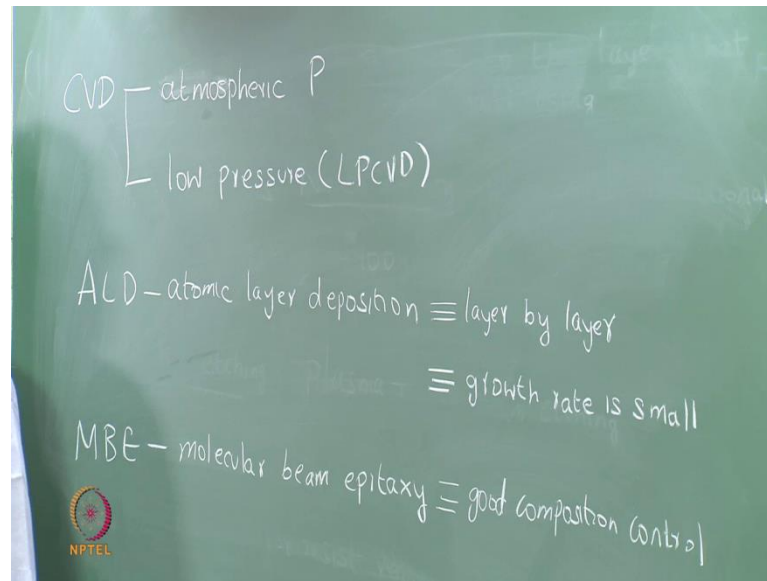 CVD – atmospheric P
low pressure (LPCVD)
ALD – atomic layer deposition ≡ layer by layer
≡ growth rate is small
MBE – molecular beam epitaxy ≡ good composition control
NPTEL